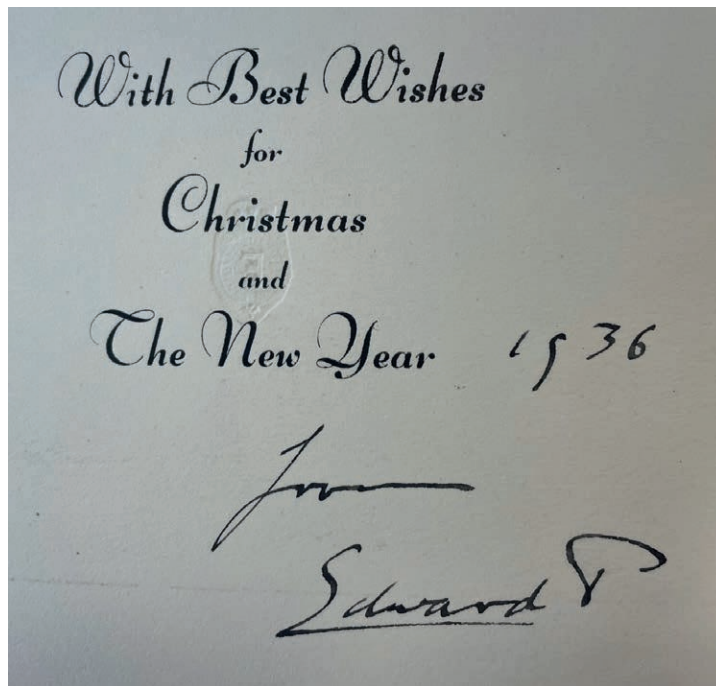 With Best Wishes
for
Christmas
and
The New Year 1936
from
Edward P